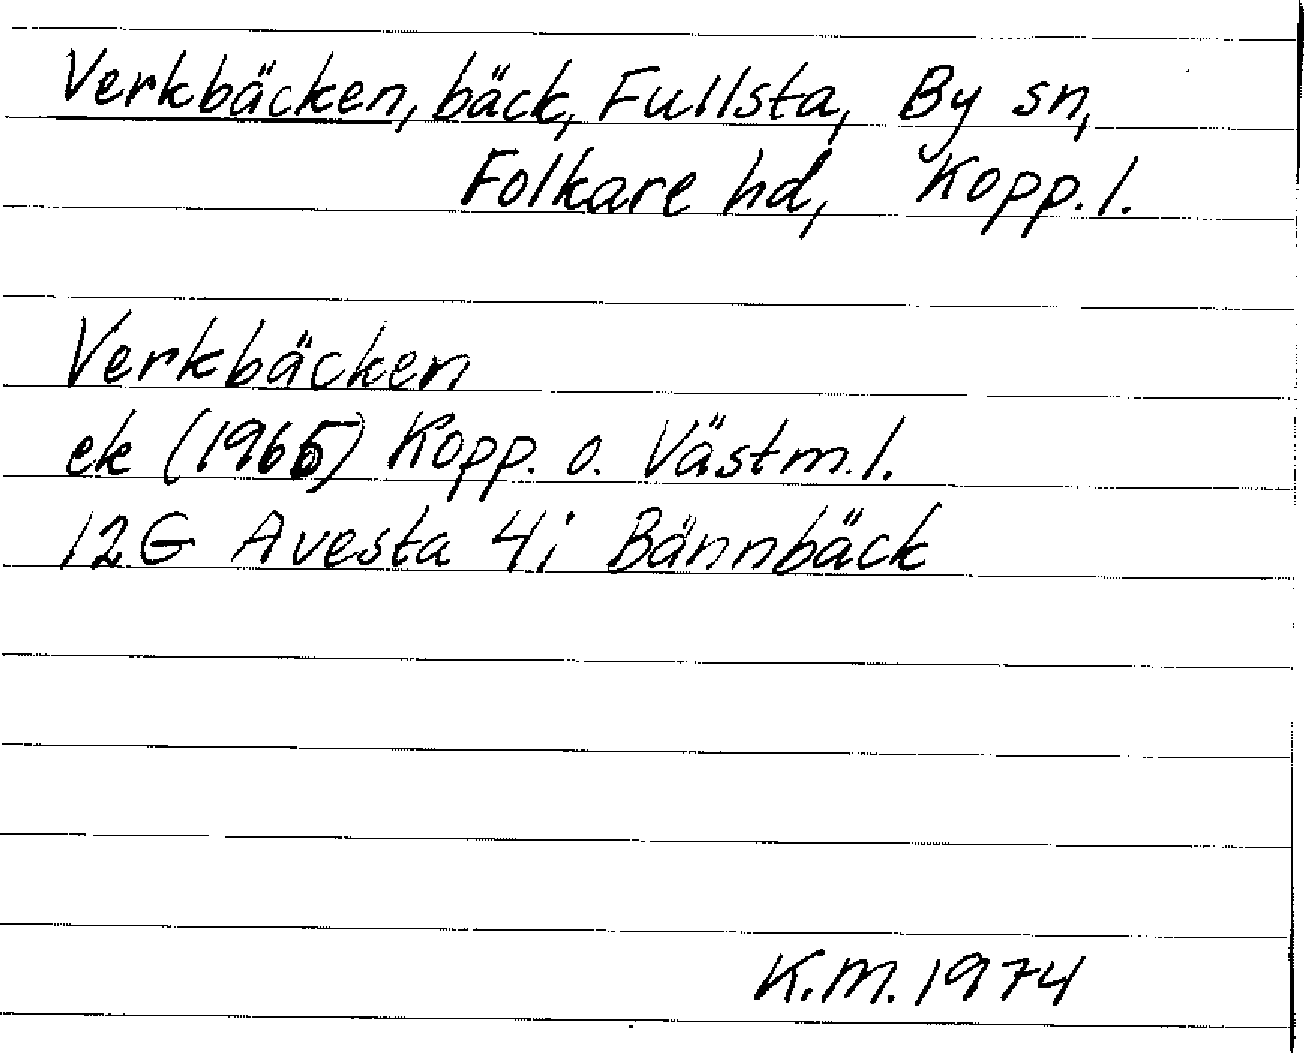 Verkbäcken, bäck, Fullsta, By sn,
Folkare hd, Kopp. l.
Verkbäcken
ek (1965) Kopp. o. Västm. l.
12G Avesta 4i Bännbäck
K.M. 1974